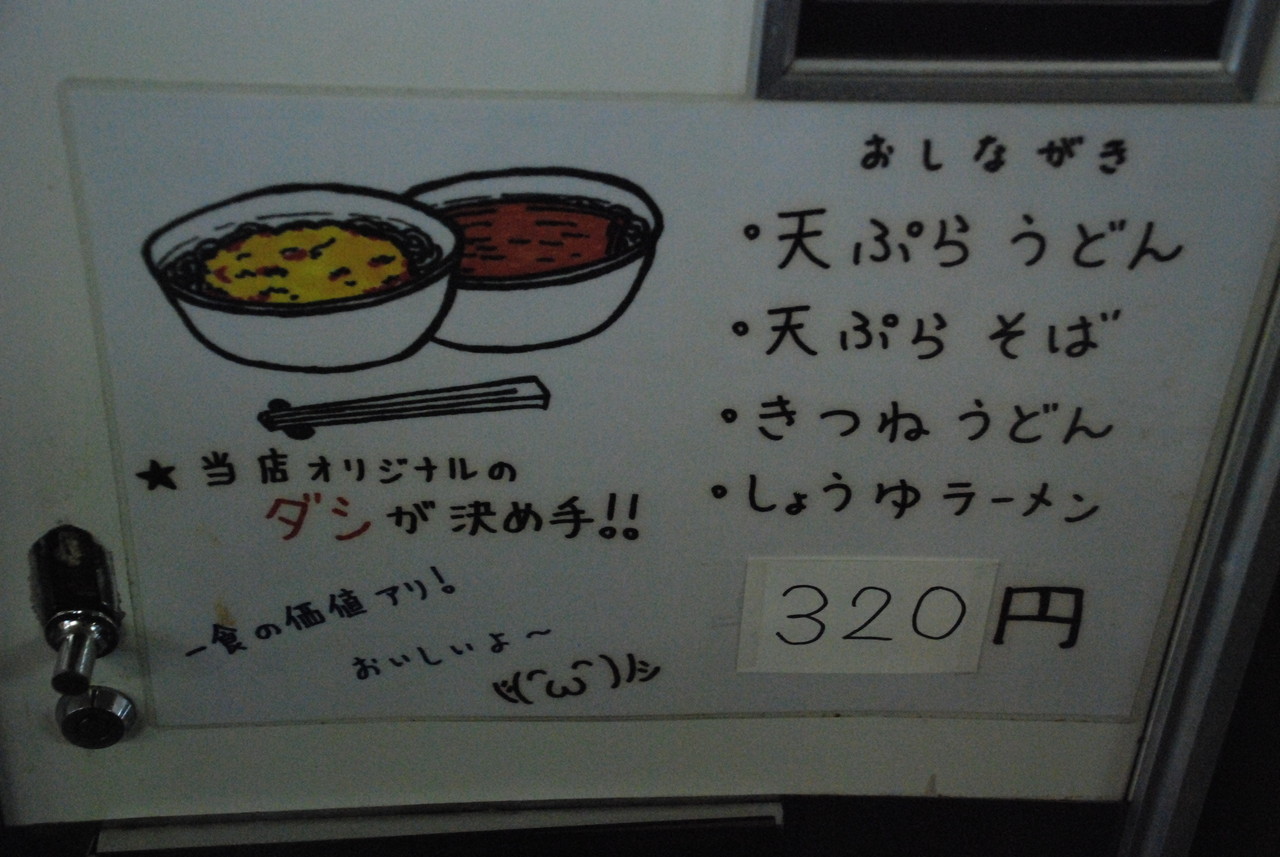 おしながき
・天ぷらうどん
・天ぷらそば
・きつねうどん
・しょうゆラーメン
320円
★当店オリジナルの
ダシが決め手!!
一食の価値アリ!
おいしいよ～
ヾ(^ω^)ノシ